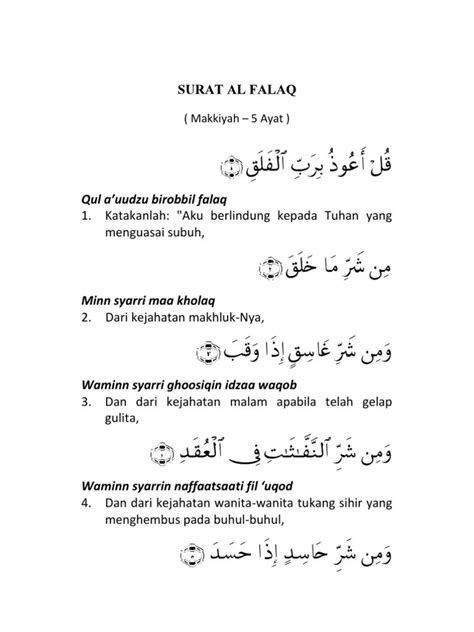 SURAT AL FALAQ
( Makkiyah – 5 Ayat )
قُلْ أَعُوذُ بِرَبِّ ٱلْفَلَقِ ﴿١﴾
Qul a’uudzu birobbil falaq
1. Katakanlah: "Aku berlindung kepada Tuhan yang
menguasai subuh,
مِن شَرِّ مَا خَلَقَ ﴿٢﴾
Minn syarri maa kholaq
2. Dari kejahatan makhluk-Nya,
وَمِن شَرِّ غَاسِقٍ إِذَا وَقَبَ ﴿٣﴾
Waminn syarri ghoosiqin idzaa waqob
3. Dan dari kejahatan malam apabila telah gelap
gulita,
وَمِن شَرِّ ٱلنَّفَّـٰثَـٰتِ فِى ٱلْعُقَدِ ﴿٤﴾
Waminn syarrin naffaatsaati fil ‘uqod
4. Dan dari kejahatan wanita-wanita tukang sihir yang
menghembus pada buhul-buhul,
وَمِن شَرِّ حَاسِدٍ إِذَا حَسَدَ ﴿٥﴾